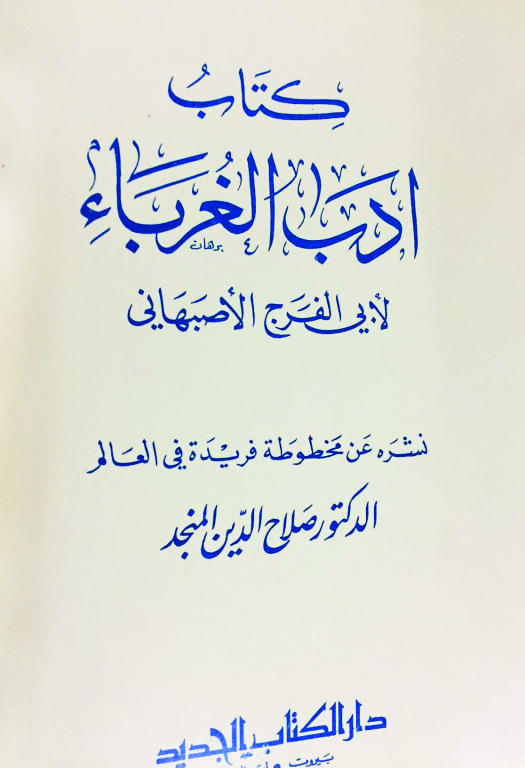 كِتَابُ
ادَبُ الغُرَبَاءِ
برهان
لأبي الفَرَج الأصبَهَاني
نشرَه عَن مَخطوطَة فريْدَة في العَالم
الدكتور صَلاح الدّين المنجد
دار الكتاب الجديد
بيروت